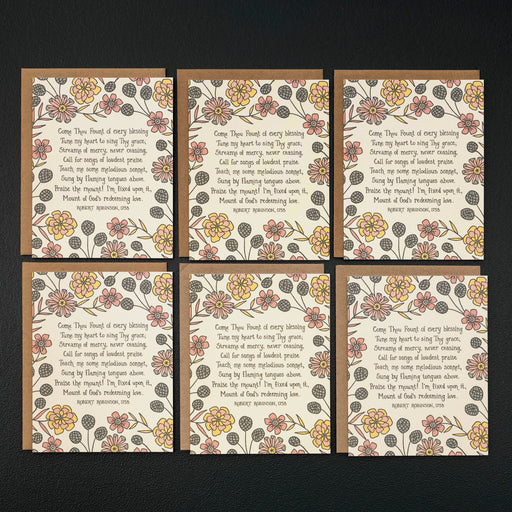 Come Thou Fount of every blessing
Tune my heart to sing Thy grace;
Streams of mercy, never ceasing,
Call for songs of loudest praise.
Teach me some melodious sonnet,
Sung by flaming tongues above.
Praise the mount! I'm fixed upon it,
Mount of God's redeeming love.
ROBERT ROBINSON, 1758
Come Thou Fount of every blessing
Tune my heart to sing Thy grace;
Streams of mercy, never ceasing,
Call for songs of loudest praise.
Teach me some melodious sonnet,
Sung by flaming tongues above.
Praise the mount! I'm fixed upon it,
Mount of God's redeeming love.
ROBERT ROBINSON, 1758
Come Thou Fount of every blessing
Tune my heart to sing Thy grace;
Streams of mercy, never ceasing,
Call for songs of loudest praise.
Teach me some melodious sonnet,
Sung by flaming tongues above.
Praise the mount! I'm fixed upon it,
Mount of God's redeeming love.
ROBERT ROBINSON, 1758
Come Thou Fount of every blessing
Tune my heart to sing Thy grace;
Streams of mercy, never ceasing,
Call for songs of loudest praise.
Teach me some melodious sonnet,
Sung by flaming tongues above.
Praise the mount! I'm fixed upon it,
Mount of God's redeeming love.
ROBERT ROBINSON, 1758
Come Thou Fount of every blessing
Tune my heart to sing Thy grace;
Streams of mercy, never ceasing,
Call for songs of loudest praise.
Teach me some melodious sonnet,
Sung by flaming tongues above.
Praise the mount! I'm fixed upon it,
Mount of God's redeeming love.
ROBERT ROBINSON, 1758
Come Thou Fount of every blessing
Tune my heart to sing Thy grace;
Streams of mercy, never ceasing,
Call for songs of loudest praise.
Teach me some melodious sonnet,
Sung by flaming tongues above.
Praise the mount! I'm fixed upon it,
Mount of God's redeeming love.
ROBERT ROBINSON, 1758